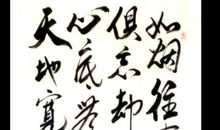 如烟往
俱忘却
心底无
天地宽